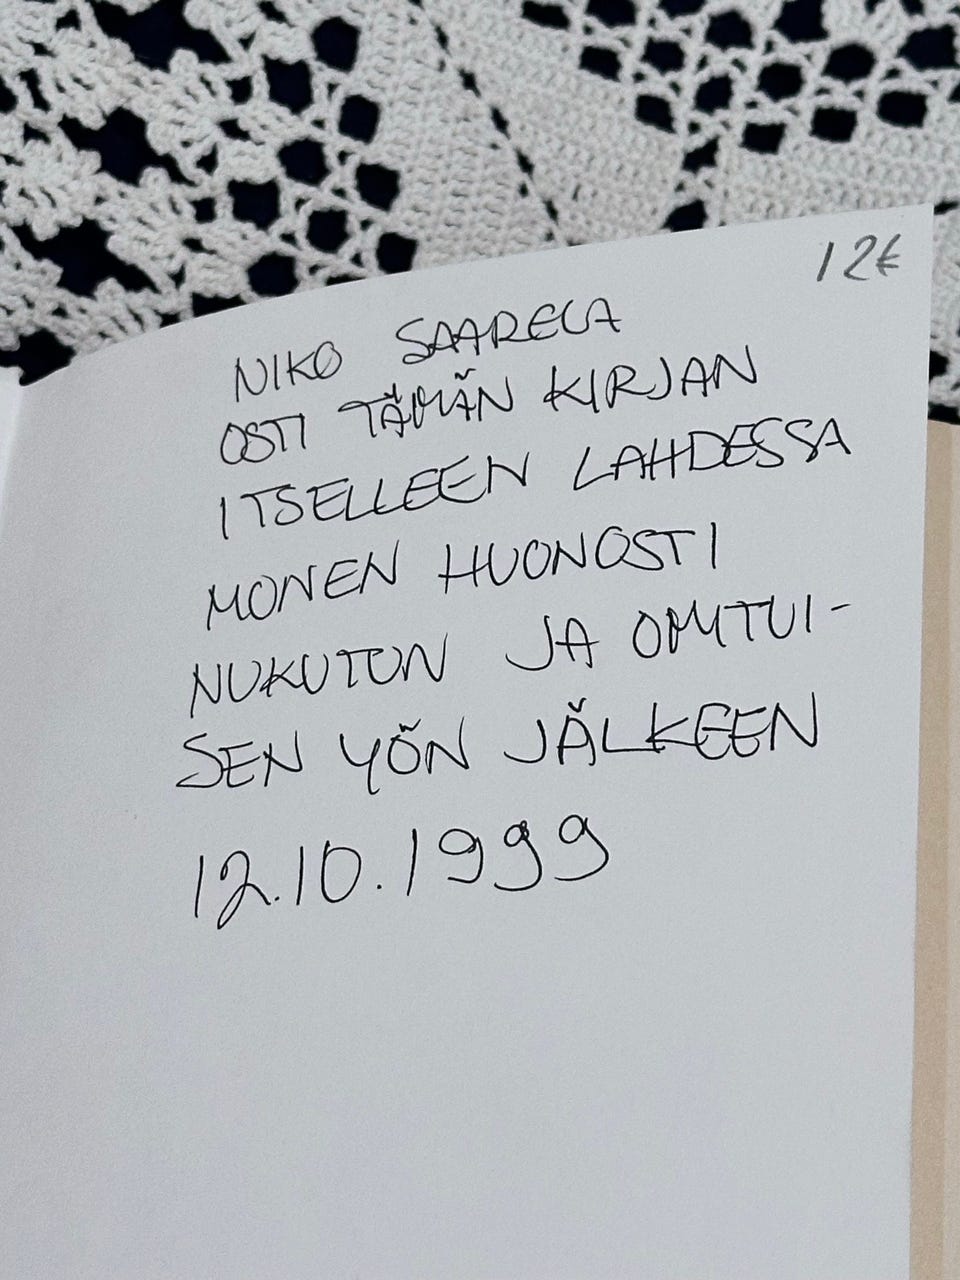 12€
NIKO SAARELA
OSTI TÄMÄN KIRJAN
ITSELLEEN LAHDESSA
MONEN HUONOSTI
NUKUTUN JA OMITUI-
SEN YÖN JÄLKEEN
12.10.1999